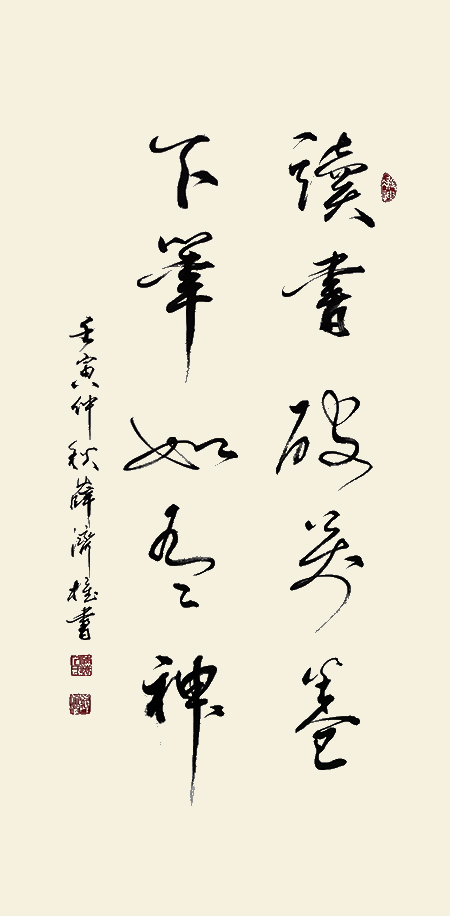 讀書破萬卷
下筆如有神
壬寅仲秋薛濟權書